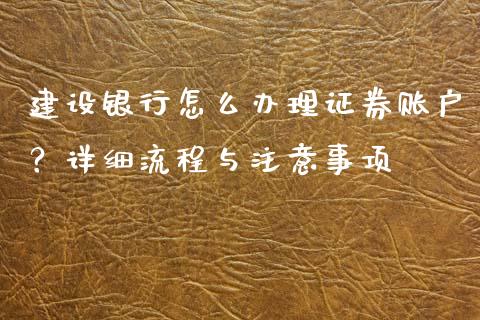 建设银行怎么办理证券账户
？详细流程与注意事项